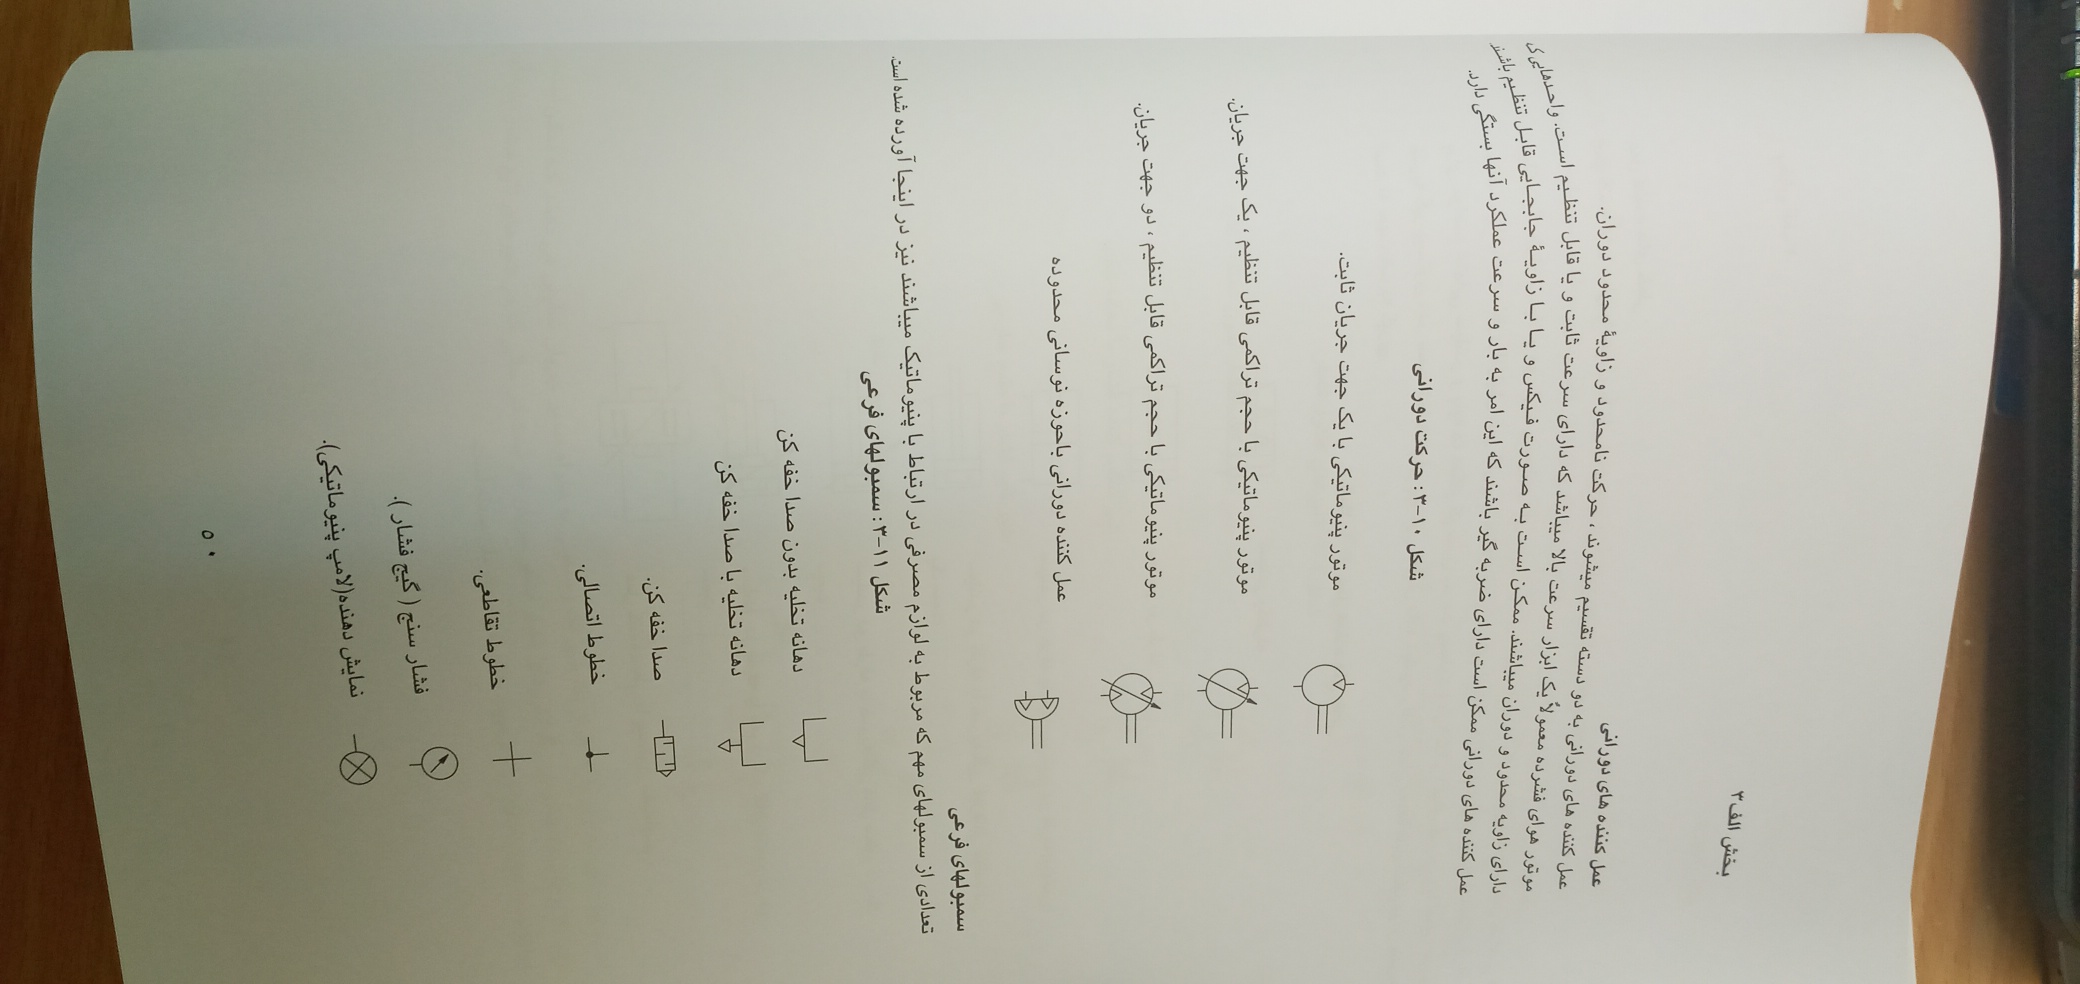 بخش الف ۳
عمل کننده های دورانی
عمل کننده های دورانی به دو دسته تقسیم میشوند ، حرکت نامحدود و زاویهٔ محدود دوران.
موتور هوای فشرده معمولاً یک ابزار سرعت بالا میباشد که دارای سرعت ثابت و یا قابل تنظیم است. واحدهایی که
دارای زاویه محدود و دوران میباشند. ممکن است به صورت فیکس و یا با زاویهٔ جابجایی قابل تنظیم باشند
عمل کننده های دورانی ممکن است دارای ضربه گیر باشند که این امر به بار و سرعت عملکرد آنها بستگی دارد.
شکل ۱۰-۳ : حرکت دورانی
موتور پنیوماتیکی با یک جهت جریان ثابت.
موتور پنیوماتیکی با حجم تراکمی قابل تنظیم ، یک جهت جریان.
موتور پنیوماتیکی با حجم تراکمی قابل تنظیم ، دو جهت جریان.
عمل کننده دورانی باحوزه نوسانی محدوده
سمبولهای فرعی
تعدادی از سمبولهای مهم که مربوط به لوازم مصرفی در ارتباط با پنیوماتیک میباشند نیز در اینجا آورده شده است.
شکل ۱۱-۳ : سمبولهای فرعی
دهانه تخلیه بدون صدا خفه کن
دهانه تخلیه با صدا خفه کن
صدا خفه کن.
خطوط اتصالی.
خطوط تقاطعی.
فشار سنج ( گیج فشار ).
نمایش دهنده(لامپ پنیوماتیکی).
۵۰